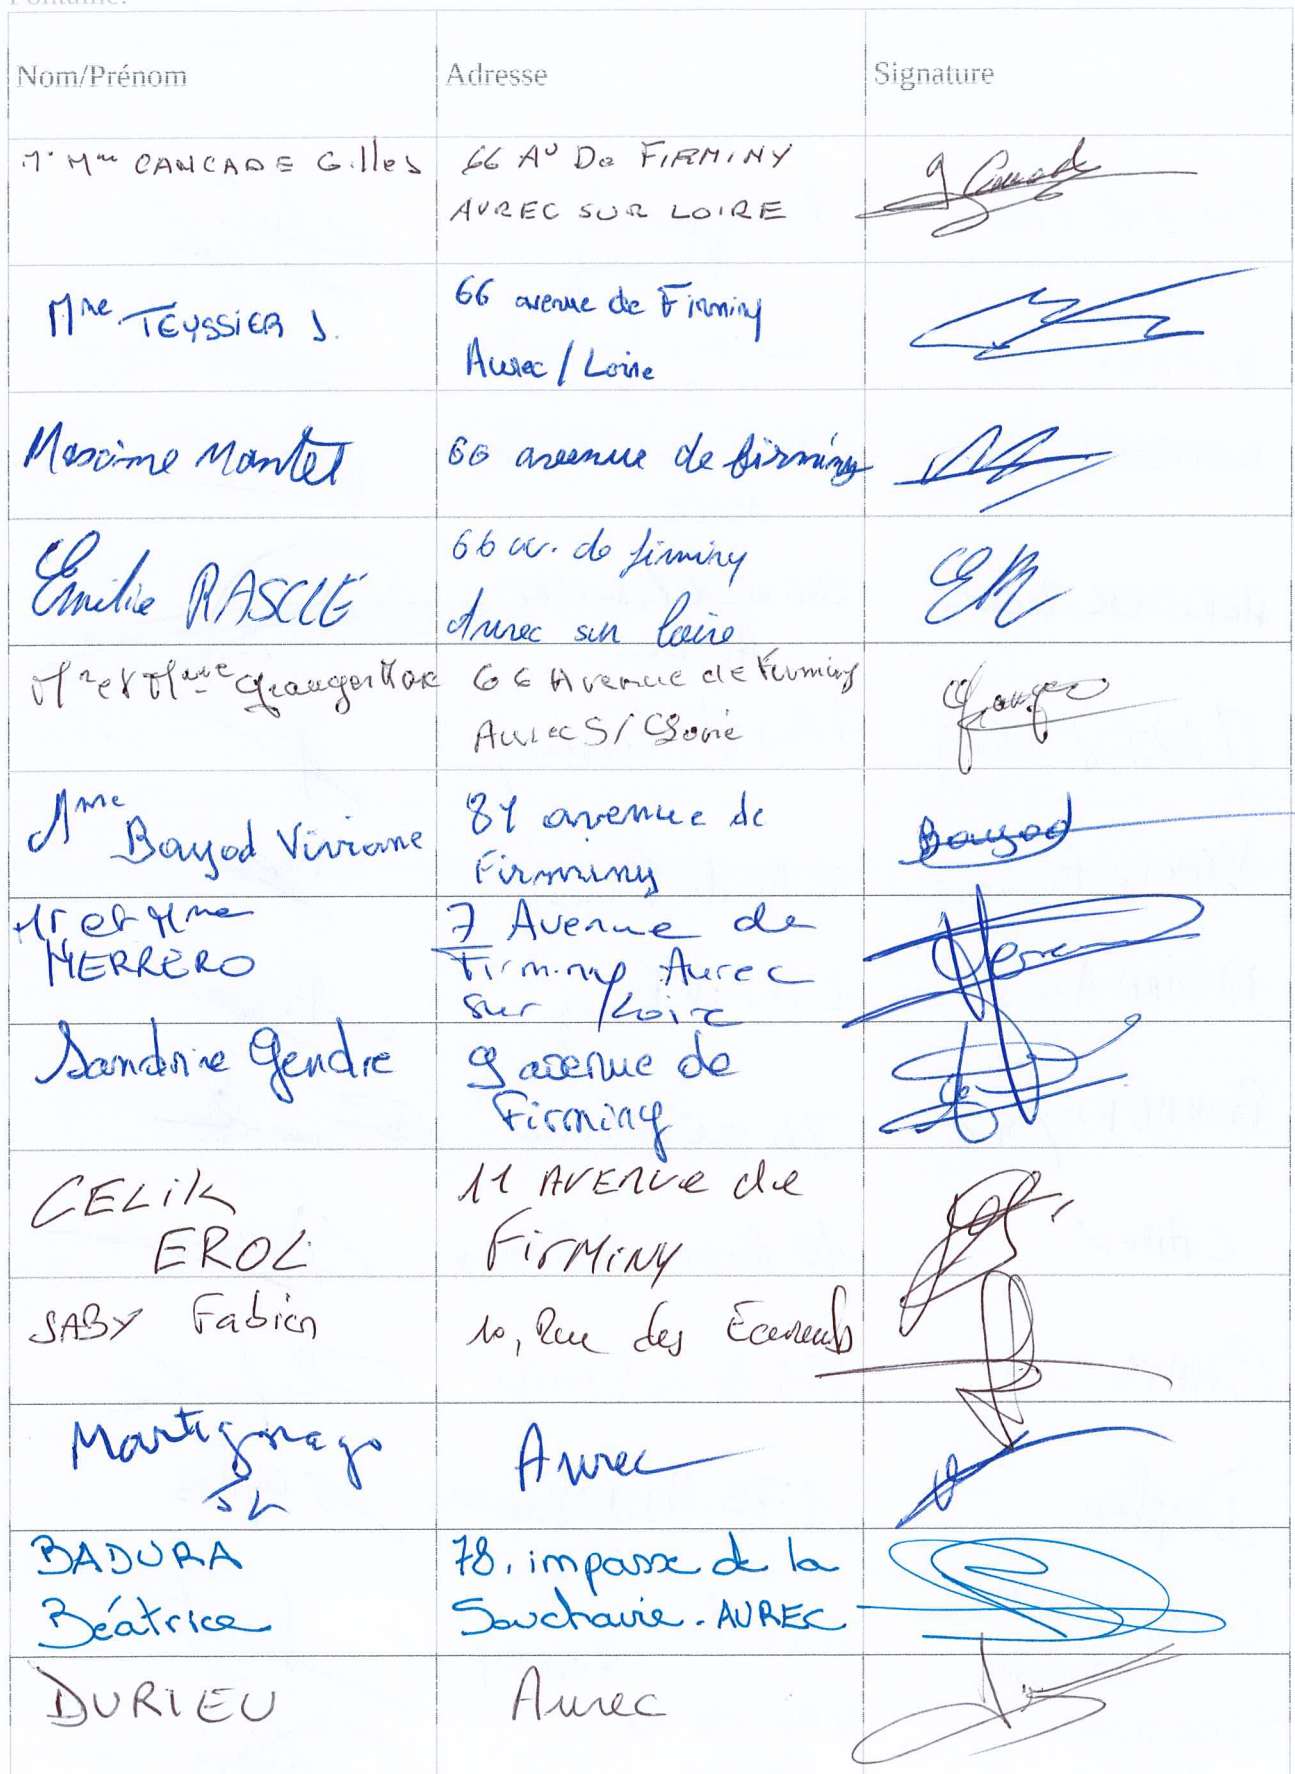 Fontaine.
Nom/Prénom
Adresse
Signature
Mr Mme CANCADE Gilles
66 Av De FIRMINY
AUREC SUR LOIRE
Mme TEYSSIER J.
66 avenue de Firminy
Aurec / Loire
Maxime Mantel
66 avenue de firminy
Emilie RASCLE
66 av. de firminy
Aurec sur loire
ER
Mr et Mme Granger Marc
66 Avenue de Firminy
Aurec S/ Loire
Granger
Mme
Bayod Viviane
81 avenue de
Firminy
Bayod
Mr et Mme
HERRERO
7 Avenue de
Firminy Aurec
sur / Loire
Sandrine Gendre
9 avenue de
Firminy
CELIK
EROL
11 AVENUE de
FirMiNY
SABY Fabien
10, Rue des
Martignago
JL
Aurec
BADURA
Béatrice
78, impasse de la
Souchaire - AUREC
DURIEU
Aurec